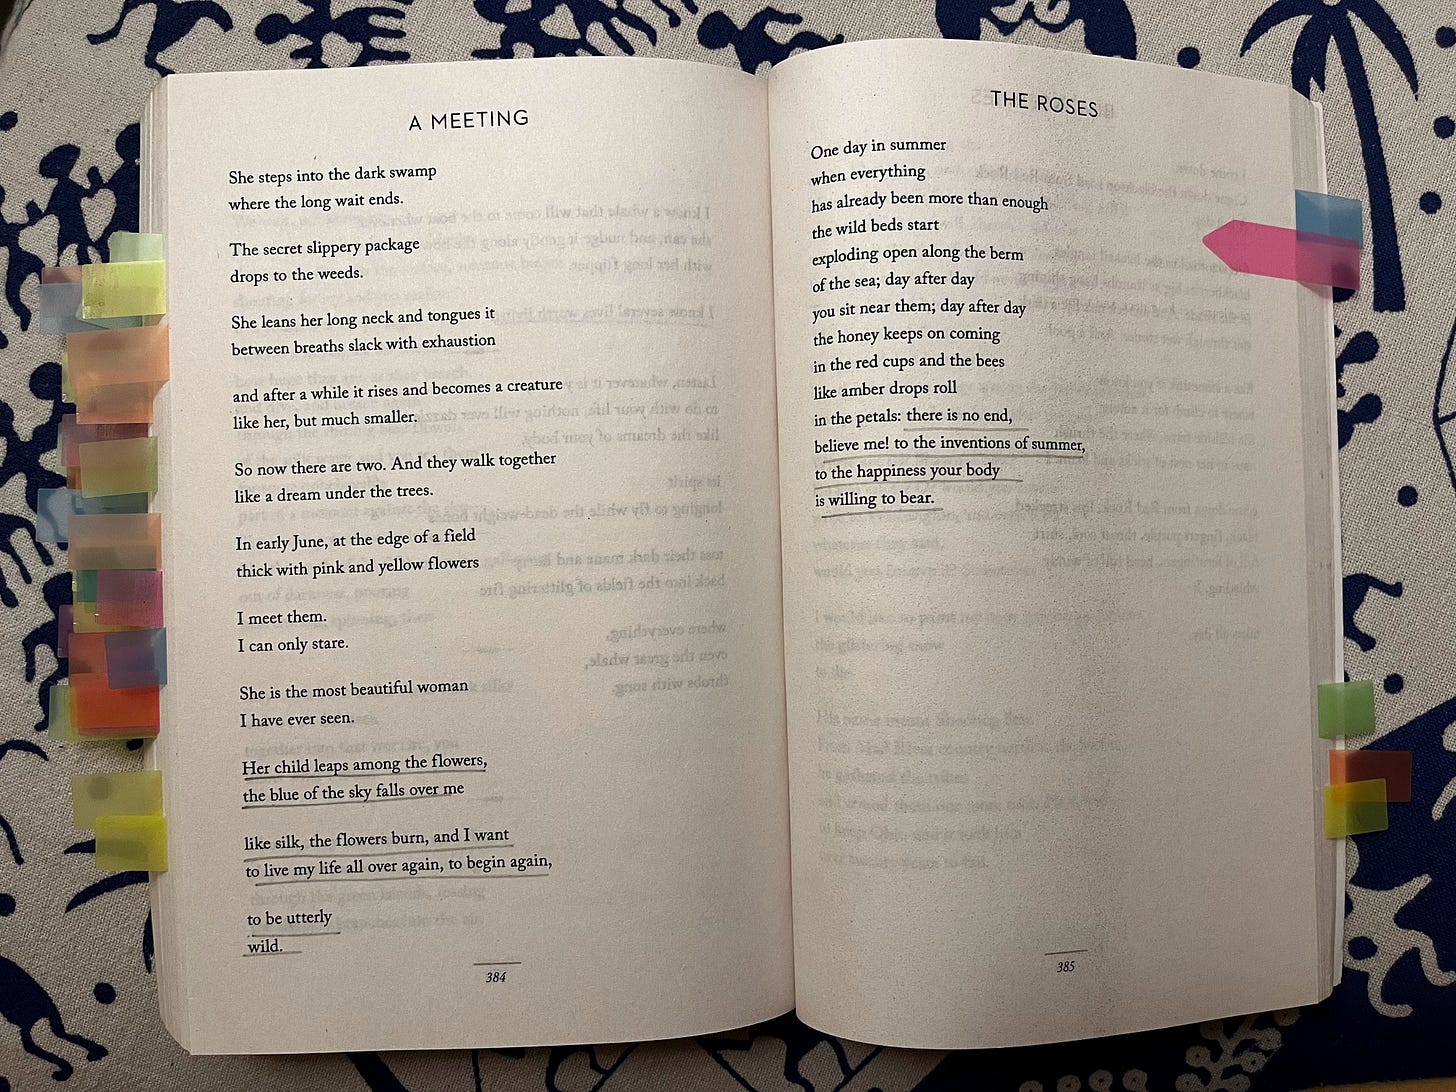 A MEETING
She steps into the dark swamp
where the long wait ends.
The secret slippery package
drops to the weeds.
She leans her long neck and tongues it
between breaths slack with exhaustion
and after a while it rises and becomes a creature
like her, but much smaller.
So now there are two. And they walk together
like a dream under the trees.
In early June, at the edge of a field
thick with pink and yellow flowers
I meet them.
I can only stare.
She is the most beautiful woman
I have ever seen.
Her child leaps among the flowers,
the blue of the sky falls over me
like silk, the flowers burn, and I want
to live my life all over again, to begin again,
to be utterly
wild.
384
THE ROSES
One day in summer
when everything
has already been more than enough
the wild beds start
exploding open along the berm
of the sea; day after day
you sit near them; day after day
the honey keeps on coming
in the red cups and the bees
like amber drops roll
in the petals: there is no end,
believe me! to the inventions of summer,
to the happiness your body
is willing to bear.
385